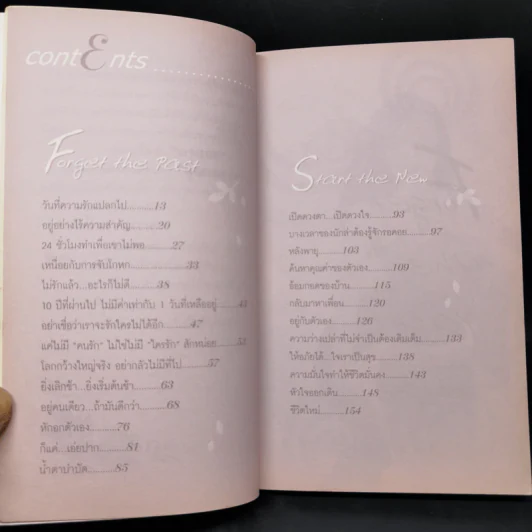 contEnts
Forget the Past
วันที่ความรักแปลกไป..........13
อยู่อย่างไร้ความสำคัญ..........20
24 ชั่วโมงทำเพื่อเขาไม่พอ..........27
เหนื่อยกับการจับโกหก..........33
ไม่รักแล้ว...อะไรก็ไม่ดี..........38
10 ปีที่ผ่านไป ไม่มีค่าเท่ากับ 1 วันที่เหลืออยู่....43
อย่าเชื่อว่าเราจะรักใครไม่ได้อีก..........47
แค่ไม่มี "คนรัก" ไม่ใช่ไม่มี "ใครรัก" สักหน่อย....53
โลกกว้างใหญ่จริง อย่ากลัวไม่มีที่ไป..........57
ยิ่งเลิกช้า...ยิ่งเริ่มต้นช้า..........63
อยู่คนเดียว...ถ้ามันดีกว่า..........68
หักอกตัวเอง..........76
ก็แค่...เอ่ยปาก..........81
น้ำตาบำบัด..........85
Start the New
เปิดดวงตา...เปิดดวงใจ..........93
บางเวลาของนักล่าต้องรู้จักรอคอย..........97
หลังพายุ..........103
ค้นหาคุณค่าของตัวเอง..........109
อ้อมกอดของบ้าน..........115
กลับมาหาเพื่อน..........120
อยู่กับตัวเอง..........126
ความว่างเปล่าที่ไม่จำเป็นต้องเติมเต็ม..........133
ให้อภัยได้...ใจเราเป็นสุข..........138
ความมั่นใจทำให้ชีวิตมั่นคง..........143
หัวใจออกเดิน..........148
ชีวิตใหม่..........154